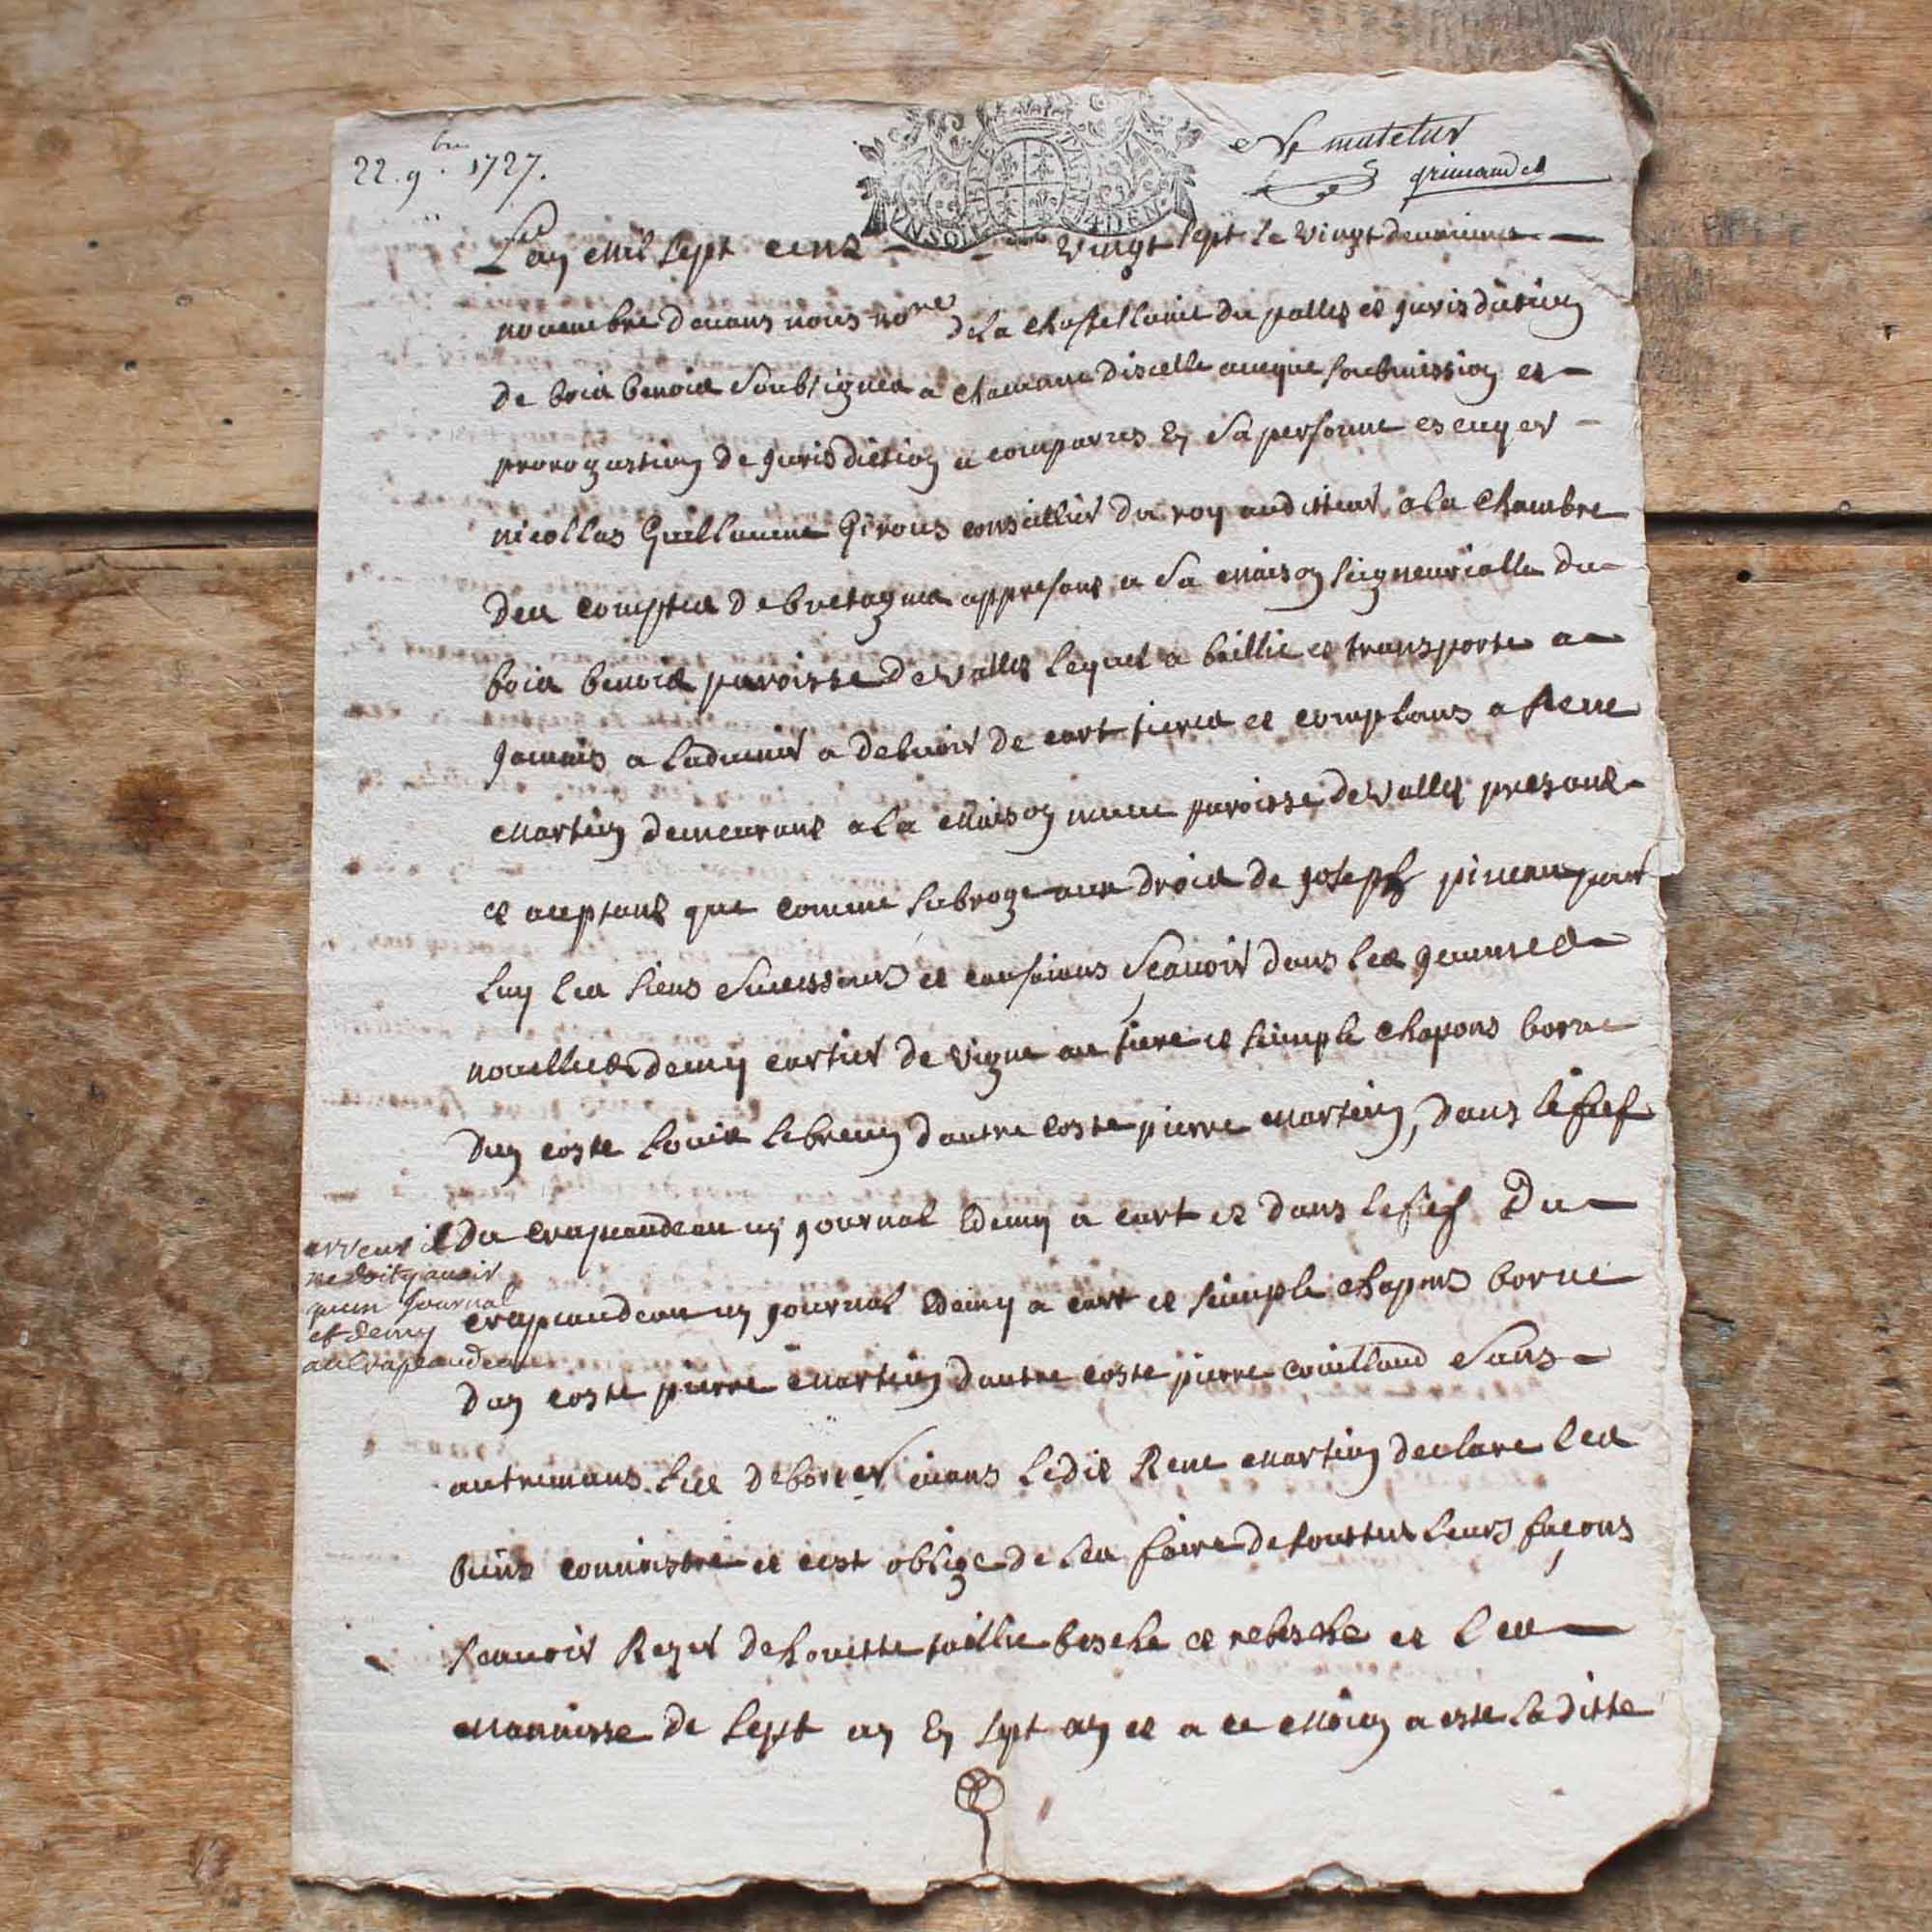 22. 9bre 1727.
Ne mutetur
grimaudet
UN SOL 4 DEN
L'an mil sept cens vingt sept le vingt deuxieme
nouembre deuans nous nore de la chastellanie du pallet et jurisdiction
de bois benoist soubsignes a chacune discelle aueque soubmission et
prorogastion de jurisdiction a comparus en sa personne escuyer
nicollas Guillaume Girous conseiller du roy auditteur a la chambre
des comptes de bretagnes appresent a sa maison seigneurialle du
bois benoist paroisse de vallet lequel a baillie et transporte a
jamais a ladvenir a debuoir de cart tierce et complans a Rene
martin demeurant a la maison neuve paroisse de vallet present
et aceptant que comme subroge aux droits de joseph pineau pour
luy les siens sucesseurs et causaians scauoir dans les
nouelles demy cartier de vigne au tiers et simple chapons borne
dun coste louis lebrein dautre coste pierre martin, dans le fief
du crapaudeau un journal & demy a cart et dans le fief du
crapaudeau un journal & demy a cart et simple chapons borne
dun coste pierre martin dautre coste pierre couillaud sans
autremans les deborner mans ledit Rene martin declare les
biens connoistre et cest oblige de les faire de touttes leurs facons
scauoir Reges dehouette taillie besche et rebesche et les
mannisse de sept an en sept an et a ce moien a este laditte
erreur il
ne doit y auoir
quun journal
et demy
au Crapaudeau